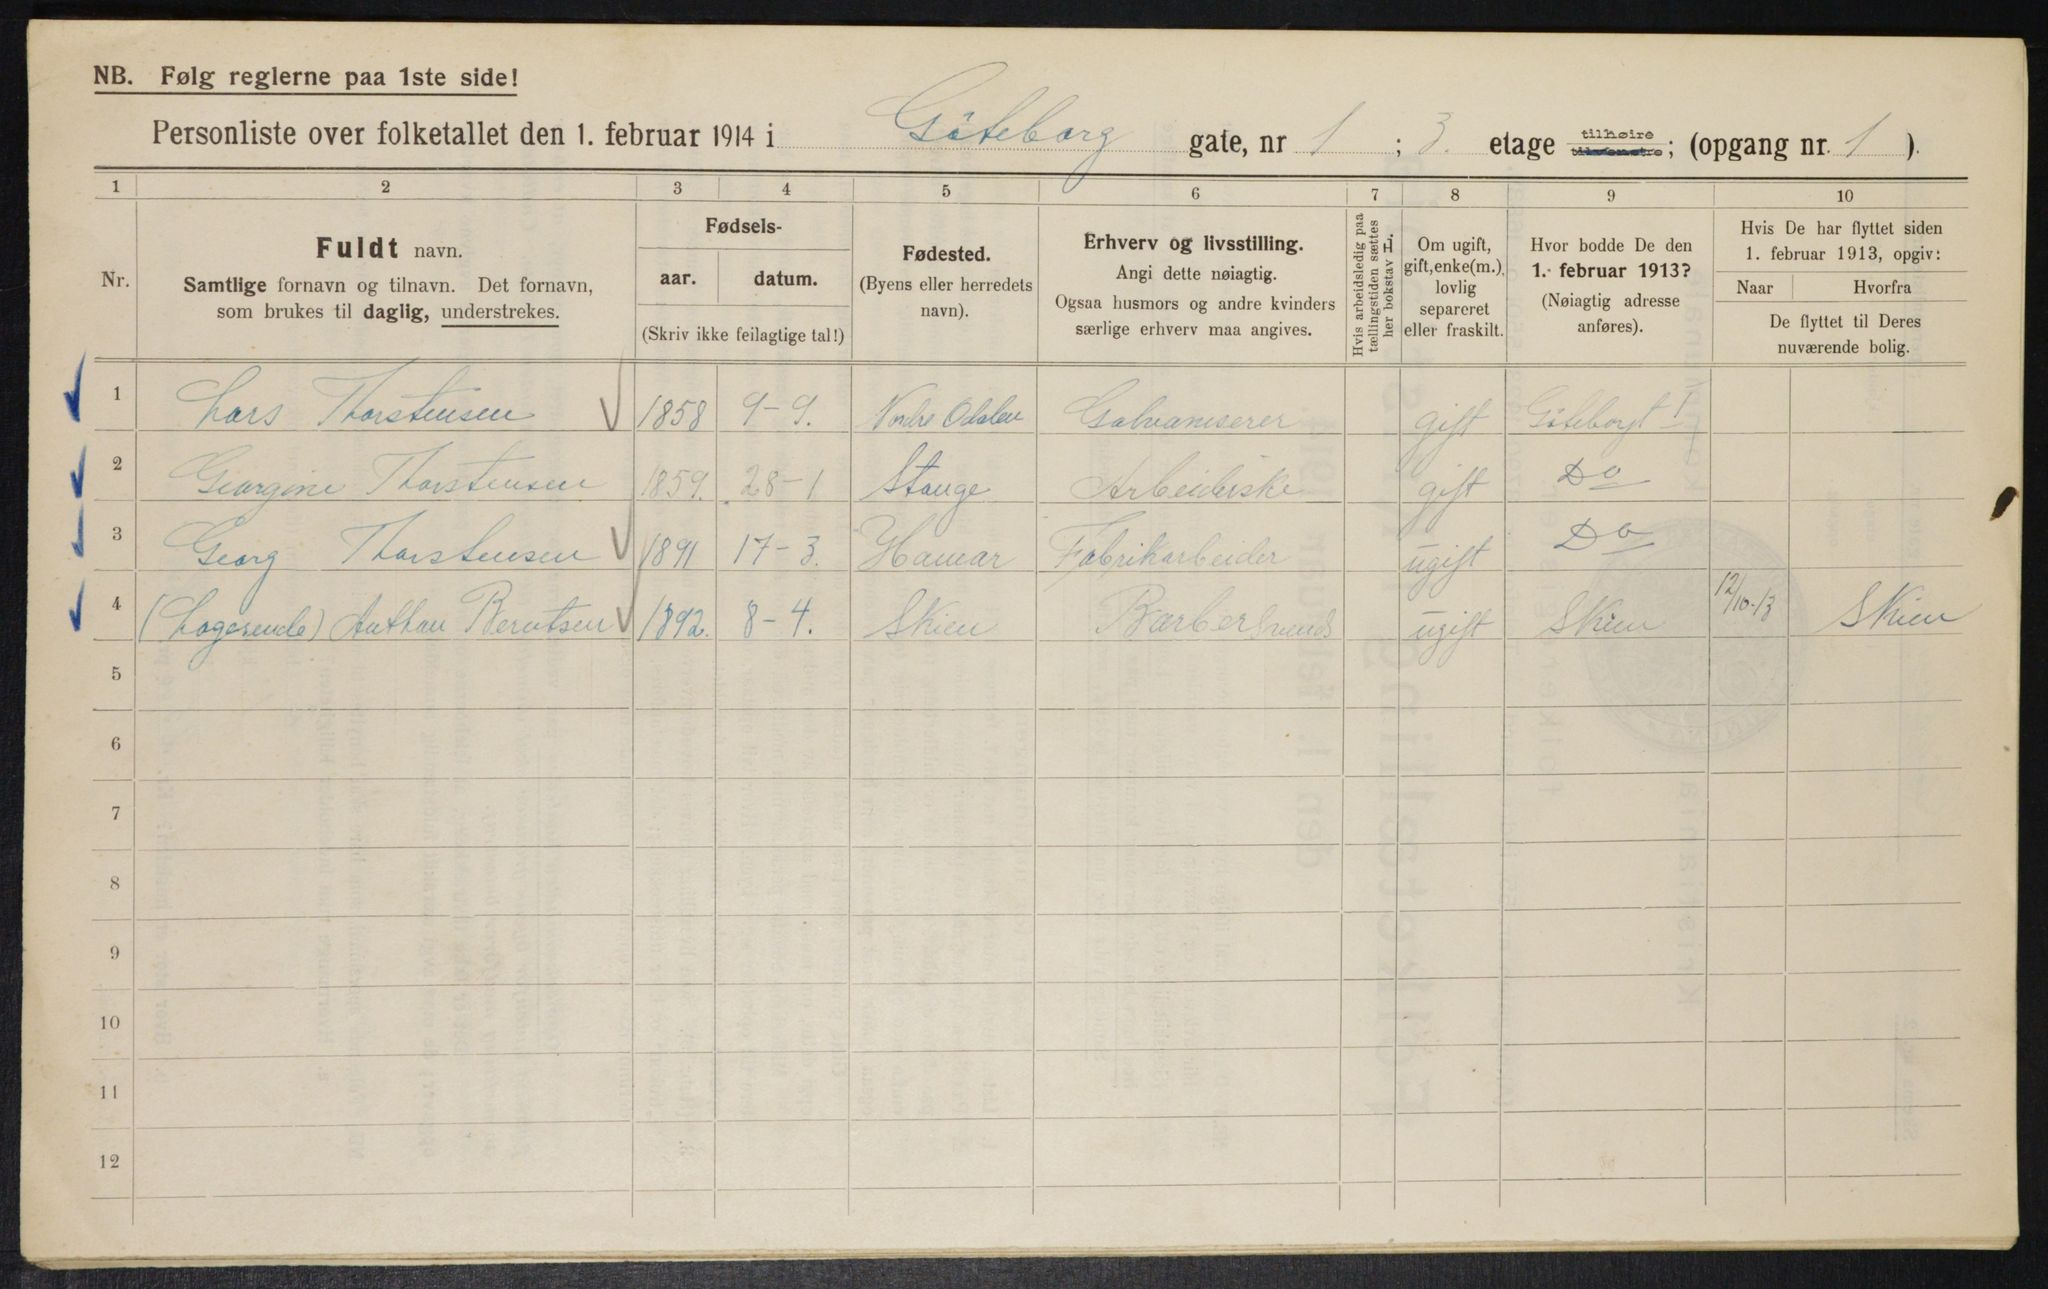 NB. Følg reglerne paa 1ste side!
Personliste over folketallet den 1. februar 1914 i Göteborg gate, nr 1 ; 3. etage tilhøire tilvenstre; (opgang nr. 1 ).
1 2 3 4 5 6 7 8 9 10
Nr.
Fuldt navn.
Samtlige fornavn og tilnavn. Det fornavn,
som brukes til daglig, understrekes.
Fødsels-
aar. datum.
(Skriv ikke feilagtige tal!)
Fødested.
(Byens eller herredets
navn).
Erhverv og livsstilling.
Angi dette nøiagtig.
Ogsaa husmors og andre kvinders
særlige erhverv maa angives.
Hvis arbeidsledig paa
tællingstiden sættes
her bokstav L.
Om ugift,
gift, enke(m.),
lovlig
separeret
eller fraskilt.
Hvor bodde De den
1. februar 1913?
(Nøiagtig adresse
anføres).
Hvis De har flyttet siden
1. februar 1913, opgiv:
Naar Hvorfra
De flyttet til Deres
nuværende bolig.
1 Lars Thorstensen 1858 9-9. Nordre Odalen Galvaniserer gift Göteborgt 1
2 Georgine Thorstensen 1859. 28-1 Stange Arbeiderske gift Do
3 Georg Thorstensen 1891 17-3. Hamar Fabrikarbeider ugift Do
4 (Logerende) Anthau Berntsen 1892. 8-4. Skien Barbersvends ugift Skien 12/10-13 Skien
5
6
7
8
9
10
11
12